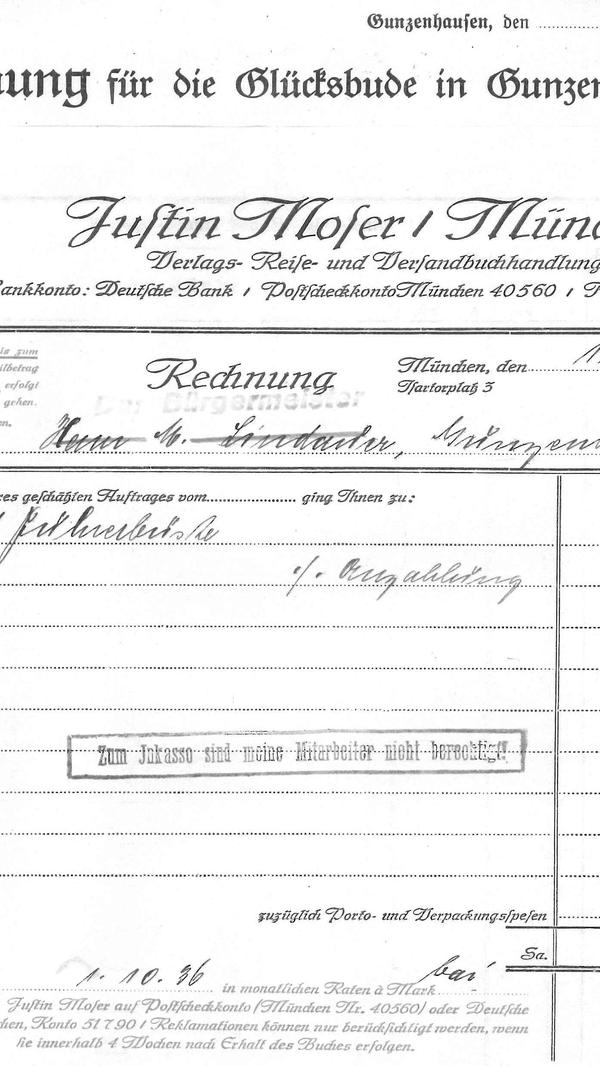 Gunzenhausen, den
nung für die Glücksbude in Gunzen
Justin Moser / Münc
Verlags- Reise- und Versandbuchhandlung
ankkonto: Deutsche Bank / Postscheckkonto München 40560 /
is zum
Rechnung
München, den
ilbetrag
Isartorplatz 3
erfolgt
gehen.
Der Bürgermeister
en.
Herrn M. Gunzen
res geschätzten Auftrages vom ging Ihnen zu:
./. Anzahlung
Zum Inkasso sind meine Mitarbeiter nicht berechtigt!
zuzüglich Porto- und Verpackungsspesen
Sa.
1. 10. 36 in monatlichen Raten à Mark bar
Justin Moser auf Postscheckkonto (München Nr. 40560) oder Deutsche
chen, Konto 51790 / Reklamationen können nur berücksichtigt werden, wenn
sie innerhalb 4 Wochen nach Erhalt des Buches erfolgen.